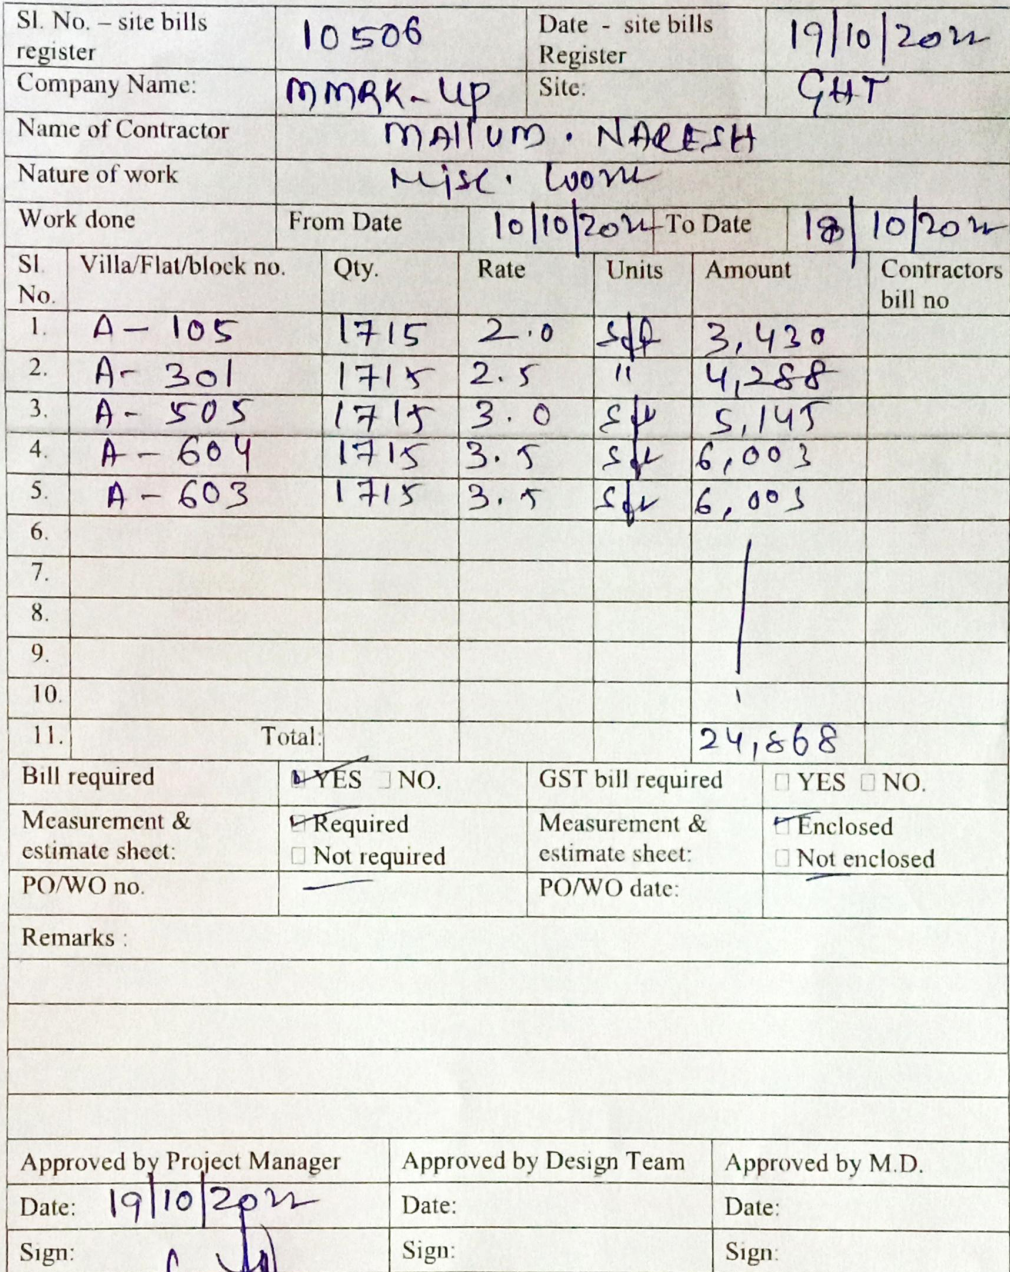 Sl. No. – site bills register 10506 Date - site bills Register 19/10/2022
Company Name: MMRK-UP Site: GHT
Name of Contractor MAllUM. NARESH
Nature of work Misc. Work
Work done From Date 10/10/2022 To Date 18/10/2022
Sl. No. Villa/Flat/block no. Qty. Rate Units Amount Contractors bill no
1. A - 105 1715 2.0 sft 3,430
2. A - 301 1715 2.5 " 4,288
3. A - 505 1715 3.0 sft 5,145
4. A - 604 1715 3.5 sft 6,003
5. A - 603 1715 3.5 sft 6,003
6.
7.
8.
9.
10.
11. Total: 24,868
Bill required YES NO. GST bill required YES NO.
Measurement & estimate sheet: Required Not required Measurement & estimate sheet: Enclosed Not enclosed
PO/WO no. PO/WO date:
Remarks :
Approved by Project Manager Approved by Design Team Approved by M.D.
Date: 19/10/2022 Date: Date:
Sign: Sign: Sign: